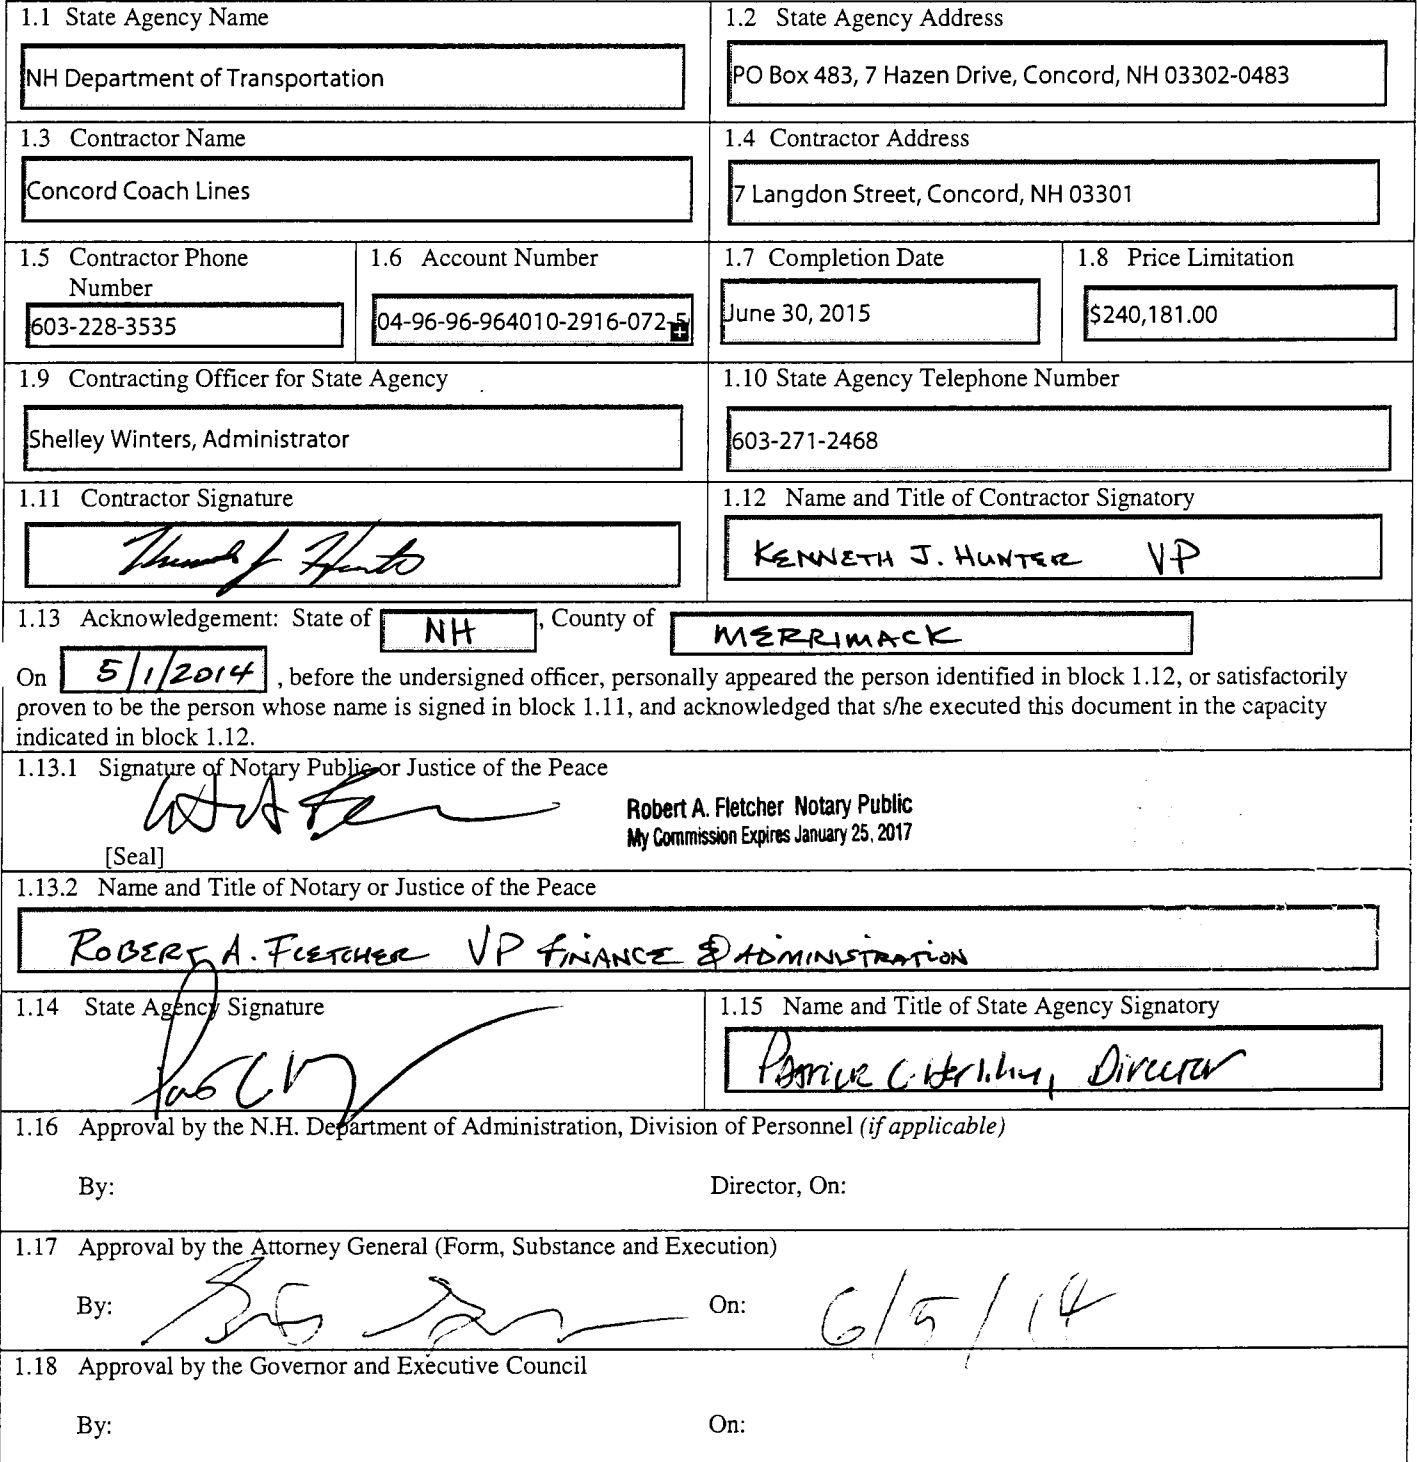 1.1 State Agency Name
1.2 State Agency Address
NH Department of Transportation
PO Box 483, 7 Hazen Drive, Concord, NH 03302-0483
1.3 Contractor Name
1.4 Contractor Address
Concord Coach Lines
7 Langdon Street, Concord, NH 03301
1.5 Contractor Phone
Number
1.6 Account Number
1.7 Completion Date
1.8 Price Limitation
603-228-3535
04-96-96-964010-2916-072-5
June 30, 2015
$240,181.00
1.9 Contracting Officer for State Agency
1.10 State Agency Telephone Number
Shelley Winters, Administrator
603-271-2468
1.11 Contractor Signature
1.12 Name and Title of Contractor Signatory
KENNETH J. HUNTER VP
1.13 Acknowledgement: State of NH, County of MERRIMACK
On 5/1/2014, before the undersigned officer, personally appeared the person identified in block 1.12, or satisfactorily
proven to be the person whose name is signed in block 1.11, and acknowledged that s/he executed this document in the capacity
indicated in block 1.12.
1.13.1 Signature of Notary Public or Justice of the Peace
Robert A. Fletcher Notary Public
My Commission Expires January 25, 2017
[Seal]
1.13.2 Name and Title of Notary or Justice of the Peace
ROBERT A. FLETCHER VP FINANCE & ADMINISTRATION
1.14 State Agency Signature
1.15 Name and Title of State Agency Signatory
Patrick C. Herlihy, Director
1.16 Approval by the N.H. Department of Administration, Division of Personnel (if applicable)
By:
Director, On:
1.17 Approval by the Attorney General (Form, Substance and Execution)
By:
On: 6/5/14
1.18 Approval by the Governor and Executive Council
By:
On: